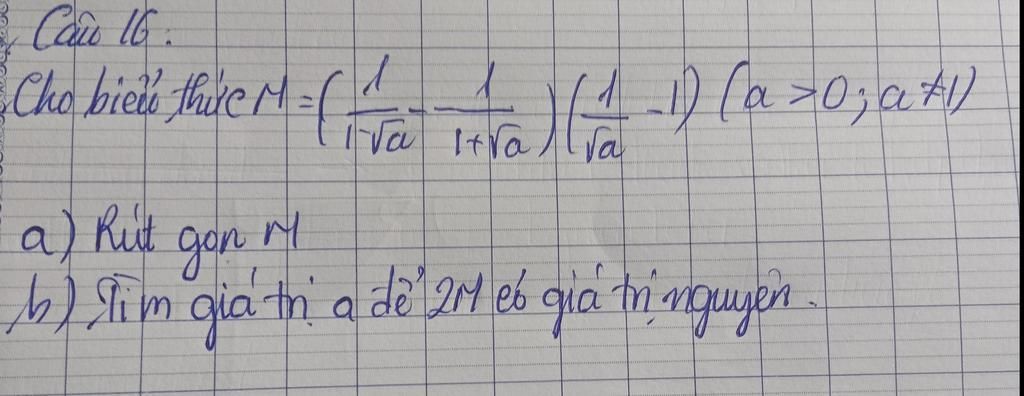 Câu 16:
Cho biểu thức M = (1/(1-√a) - 1/(1+√a)) (1/√a - 1) (a > 0; a ≠ 1)
a) Rút gọn M
b) Tìm giá trị a để 2M có giá trị nguyên.